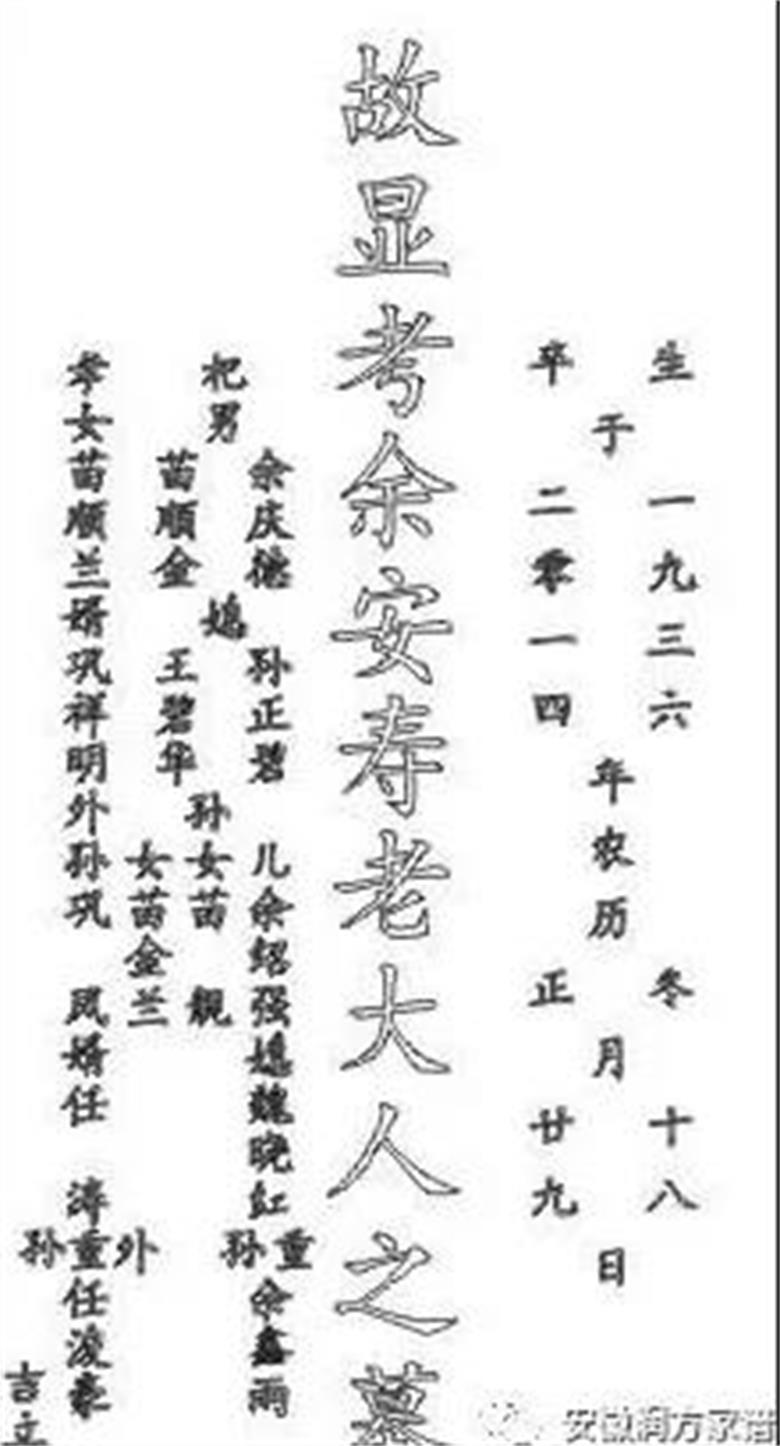 生 一九三六 冬 十八
于 年农历 月 日
卒 二零一四 正 廿九
故显考余安寿老大人之墓
余庆德 孙正碧 儿余绍强媳魏晓红 重
杞男 媳 孙女苗 靓 孙 余鑫雨
苗顺金 王碧华 女苗金兰
孝女苗顺兰婿巩祥明外孙巩 凤婿任 涛 外重孙 任浚豪
吉立
安徽润方家谱